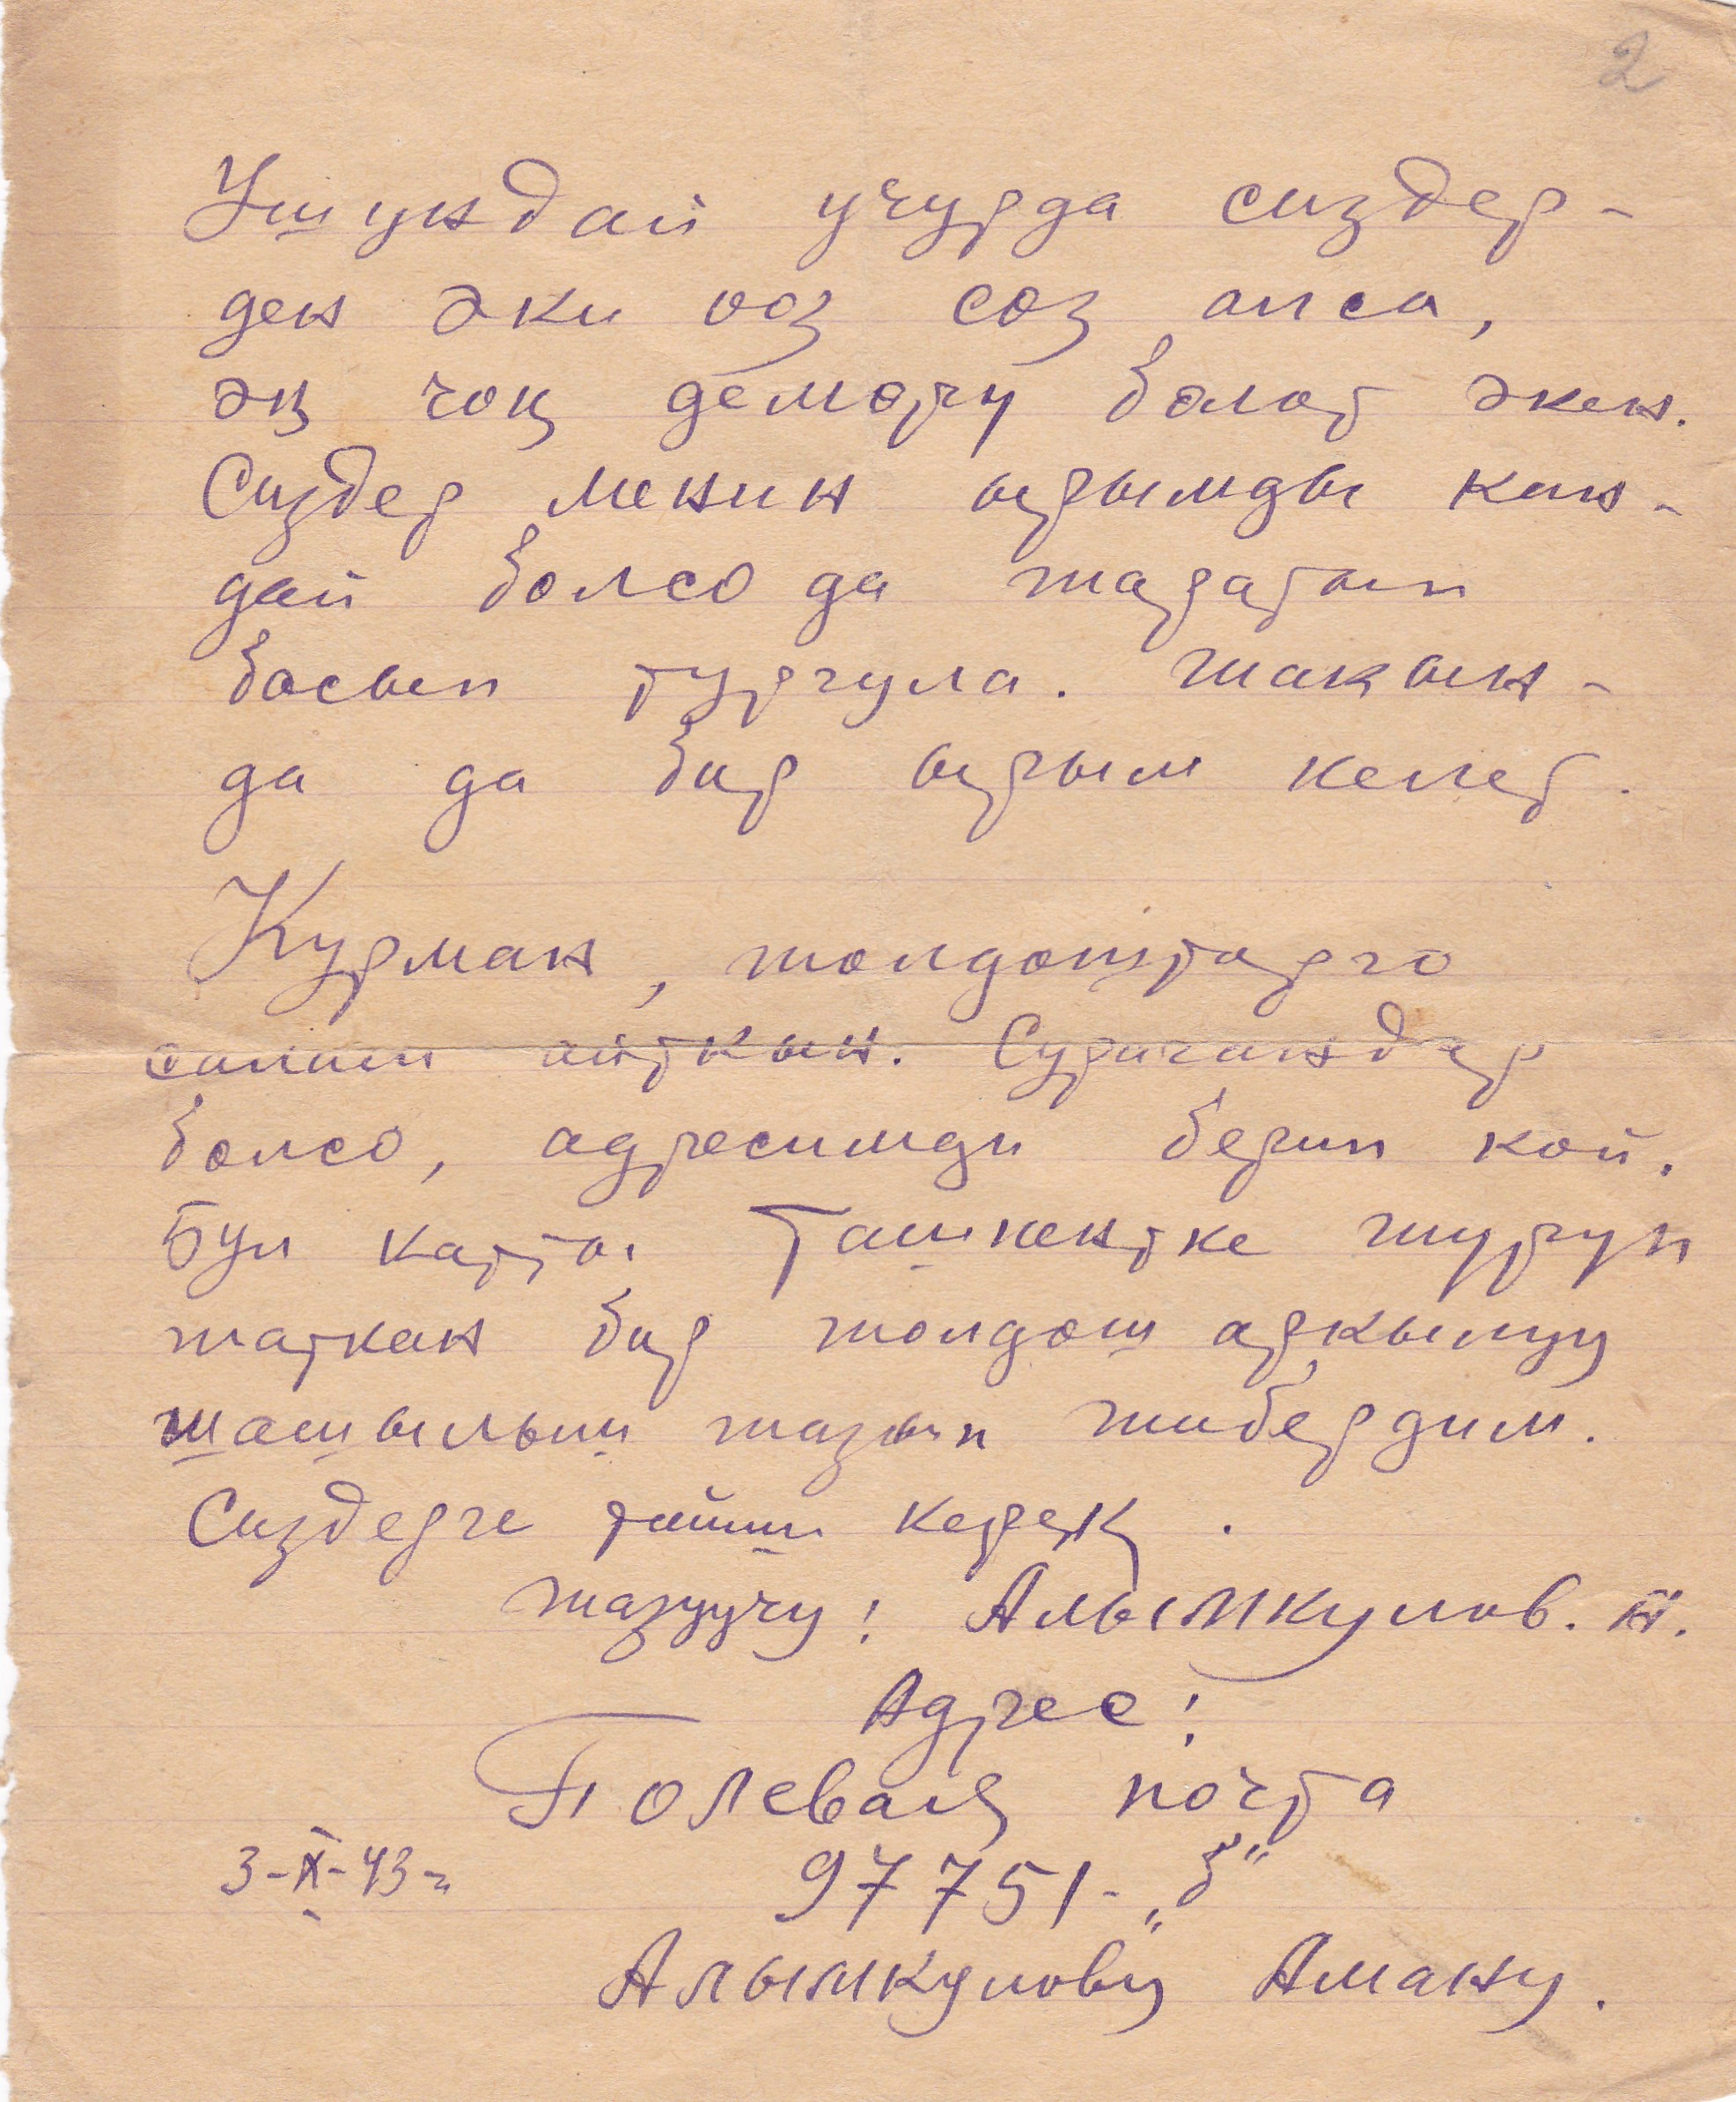 2
Ушундай учурда сиздер-
ден эки ооз сөз алса,
эң чоң демөрчү болот экен.
Сиздер менин ырымды кан-
дай болсо да жаратып
басып тургула. Жакын-
да да бир ырым келет.
Курман, жолдоштарго
салам айткын. Сурагандар
болсо, адресимди берип кой.
Бул катты Ташкентке жүрүп
жаткан бир жолдош аркылуу
шашылыш жазып жибердим.
Сиздерге тийиш керек.
Жазуучу: Алымкулов. А.
Адрес:
Полевая почта
3-X-43-г. 97751-„Б"
Алымкулову Аману.